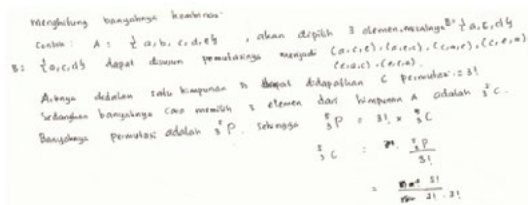 menghitung banyaknya kombinasi
Contoh : A : { a, b, c, d, e } , akan dipilih 3 elemen, misalnya B : { a, c, d }
B : { a, c, d } dapat disusun permutasinya menjadi (a, c, e), (a, e, c), (c, a, e), (c, e, a)
(e, a, c), (e, c, a).
Artinya dedalam satu himpunan B dapat didapatkan 6 permutasi = 3!
Sedangkan banyaknya cara memilih 3 elemen dari himpunan A adalah ⁵₃C.
Banyaknya permutasi adalah ⁵₃P. Sehingga ⁵₃P = 3! × ⁵₃C
⁵₃C = ⁵₃P / 3!
= 5! / 2! . 3!